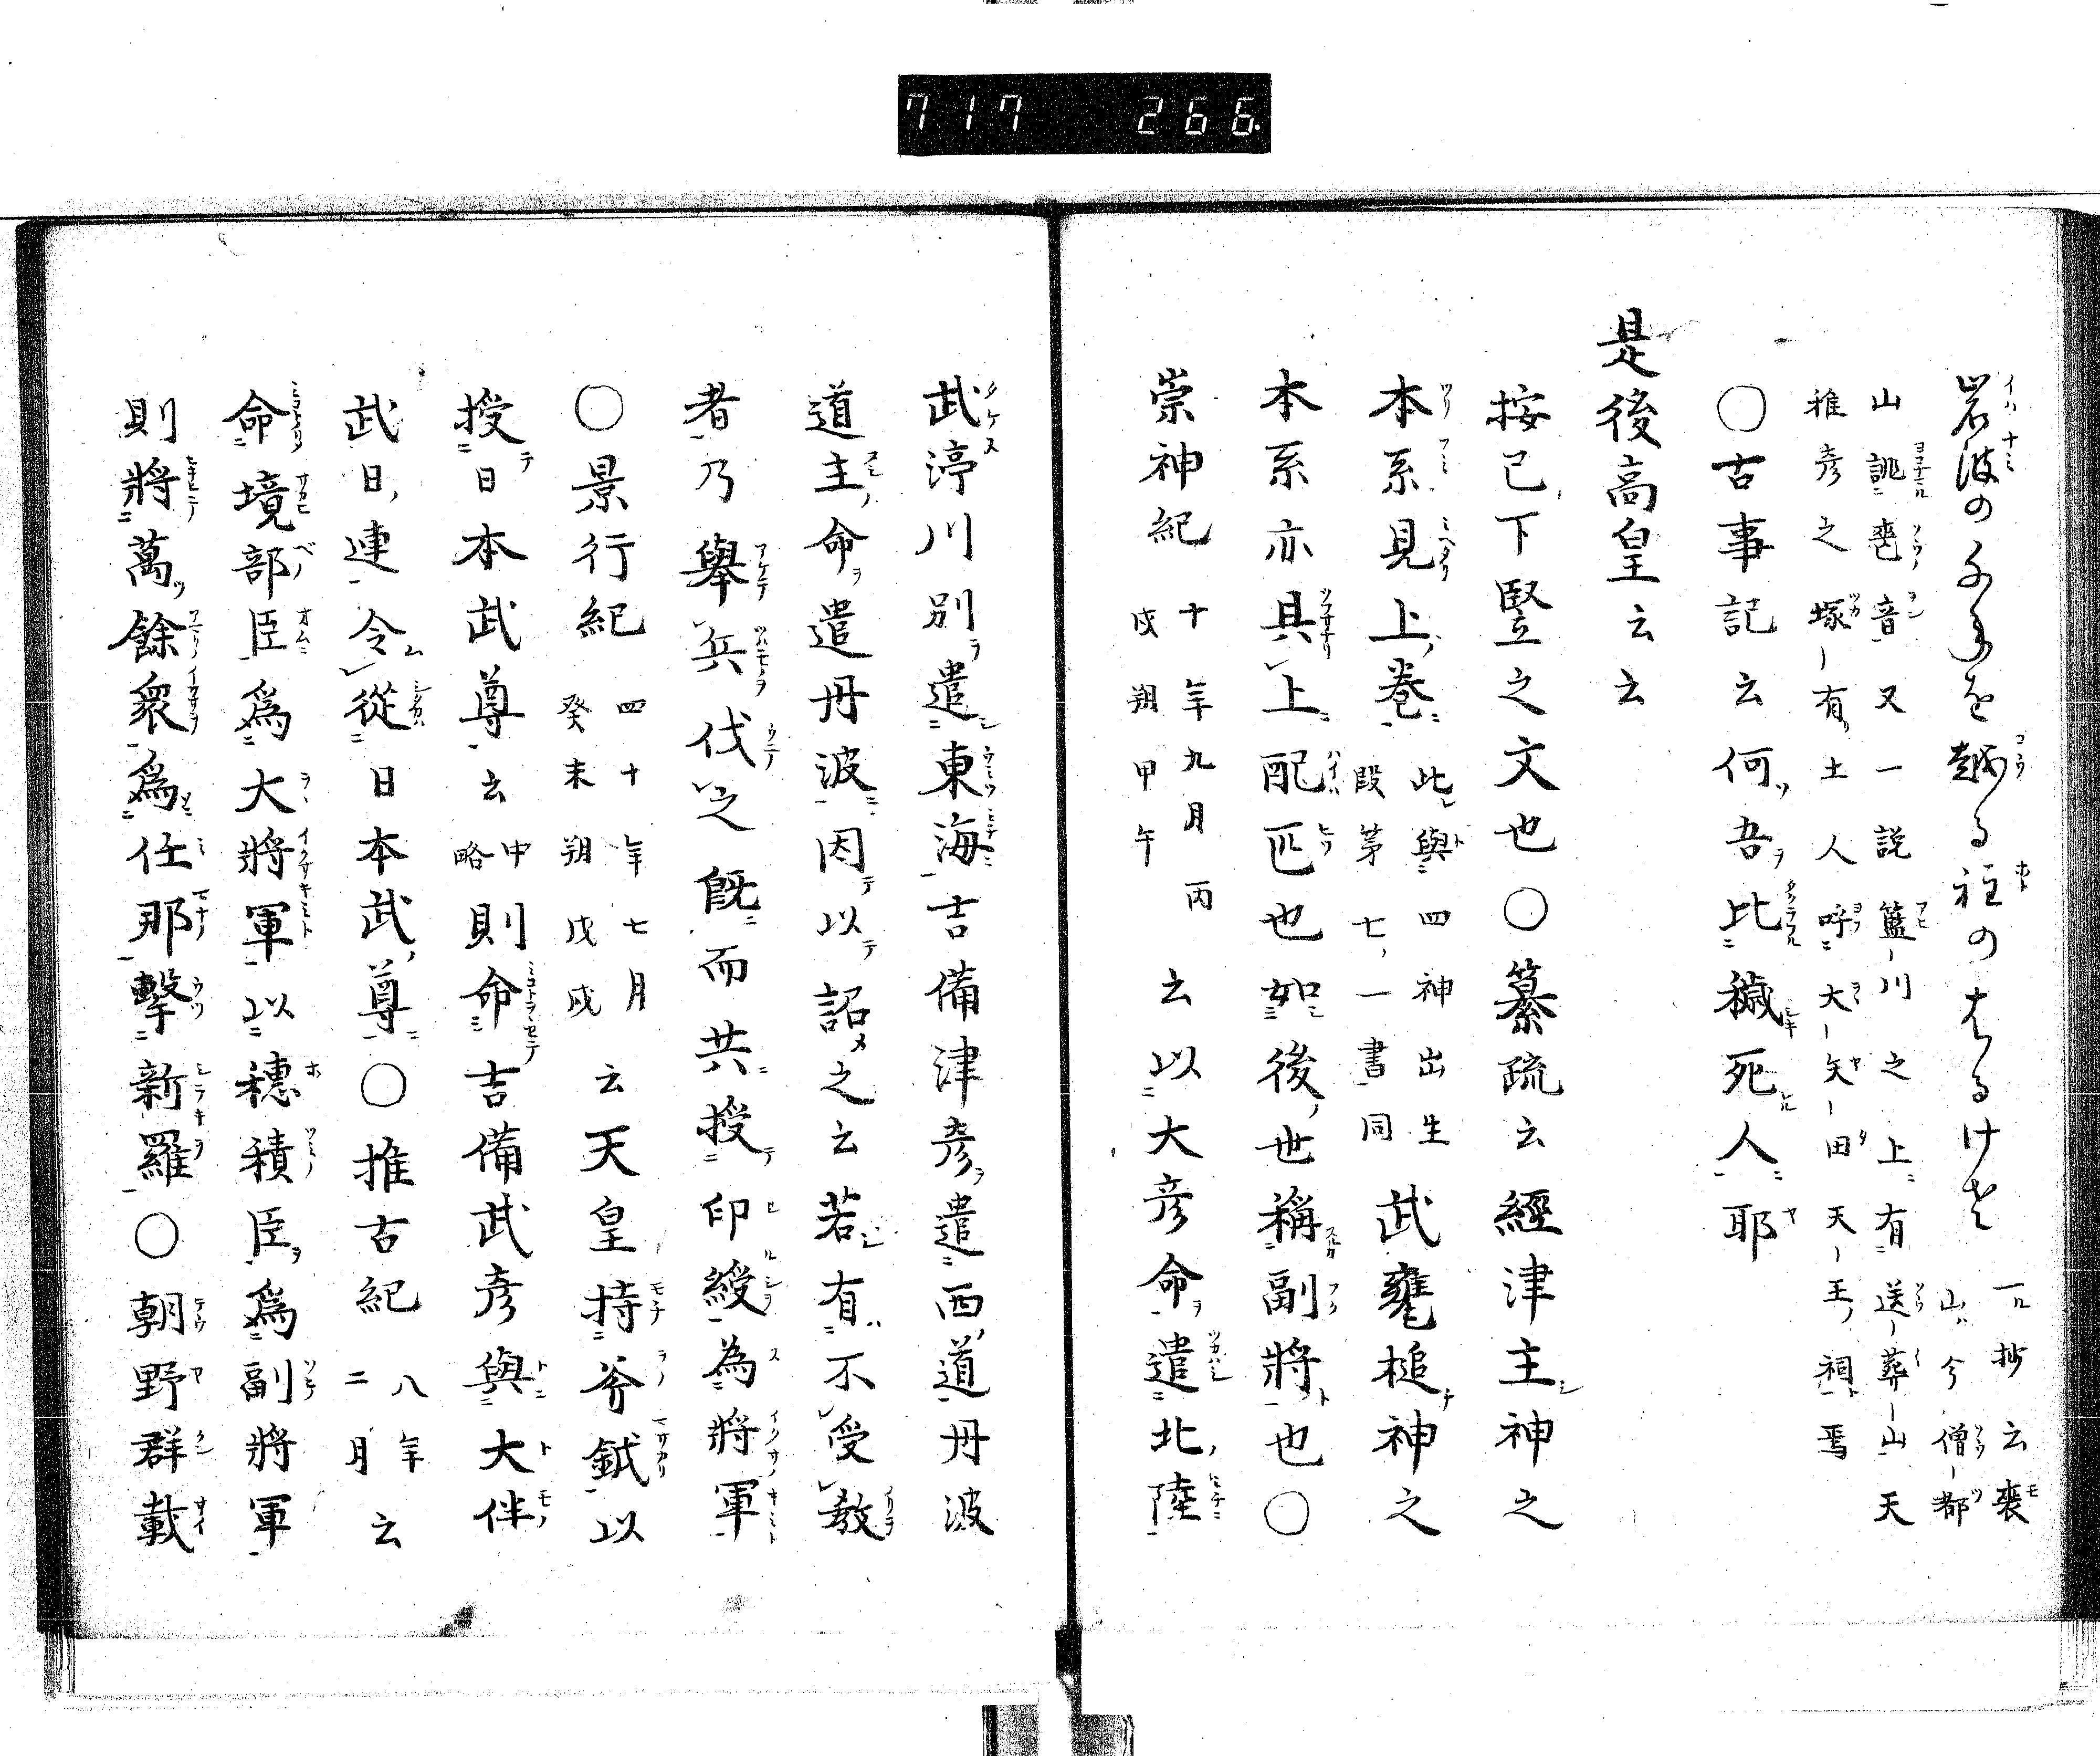 717 266
岩波の千年を越る社のはるけさ 一抄云喪
山ハ今僧都
山誂喪音又一説籃川之上有送葬山天
稚彦之塚有土人呼大矢田天王祠焉
〇古事記云何吾比穢死人耶
是後高皇云云
按已下竪之文也〇纂疏云經津主神之
本系見上卷 此與四神出生
段第七一書同 武甕槌神之
本系亦具上配匹也如後世稱副將也〇
崇神紀 十年九月丙
戌朔甲午 云以大彦命遣北陸
武渟川別遣東海吉備津彦遣西道丹波
道主命遣丹波因以詔之云若有不受教
者乃舉兵伐之既而共授印綬為將軍
〇景行紀 四十年七月
癸未朔戊戌 云天皇持斧鉞以
授日本武尊云 中略 則命吉備武彦與大伴
武日連令從日本武尊〇推古紀 八年
二月 云
命境部臣爲大將軍以穗積臣爲副將軍
則將萬餘衆爲任那擊新羅〇朝野群載